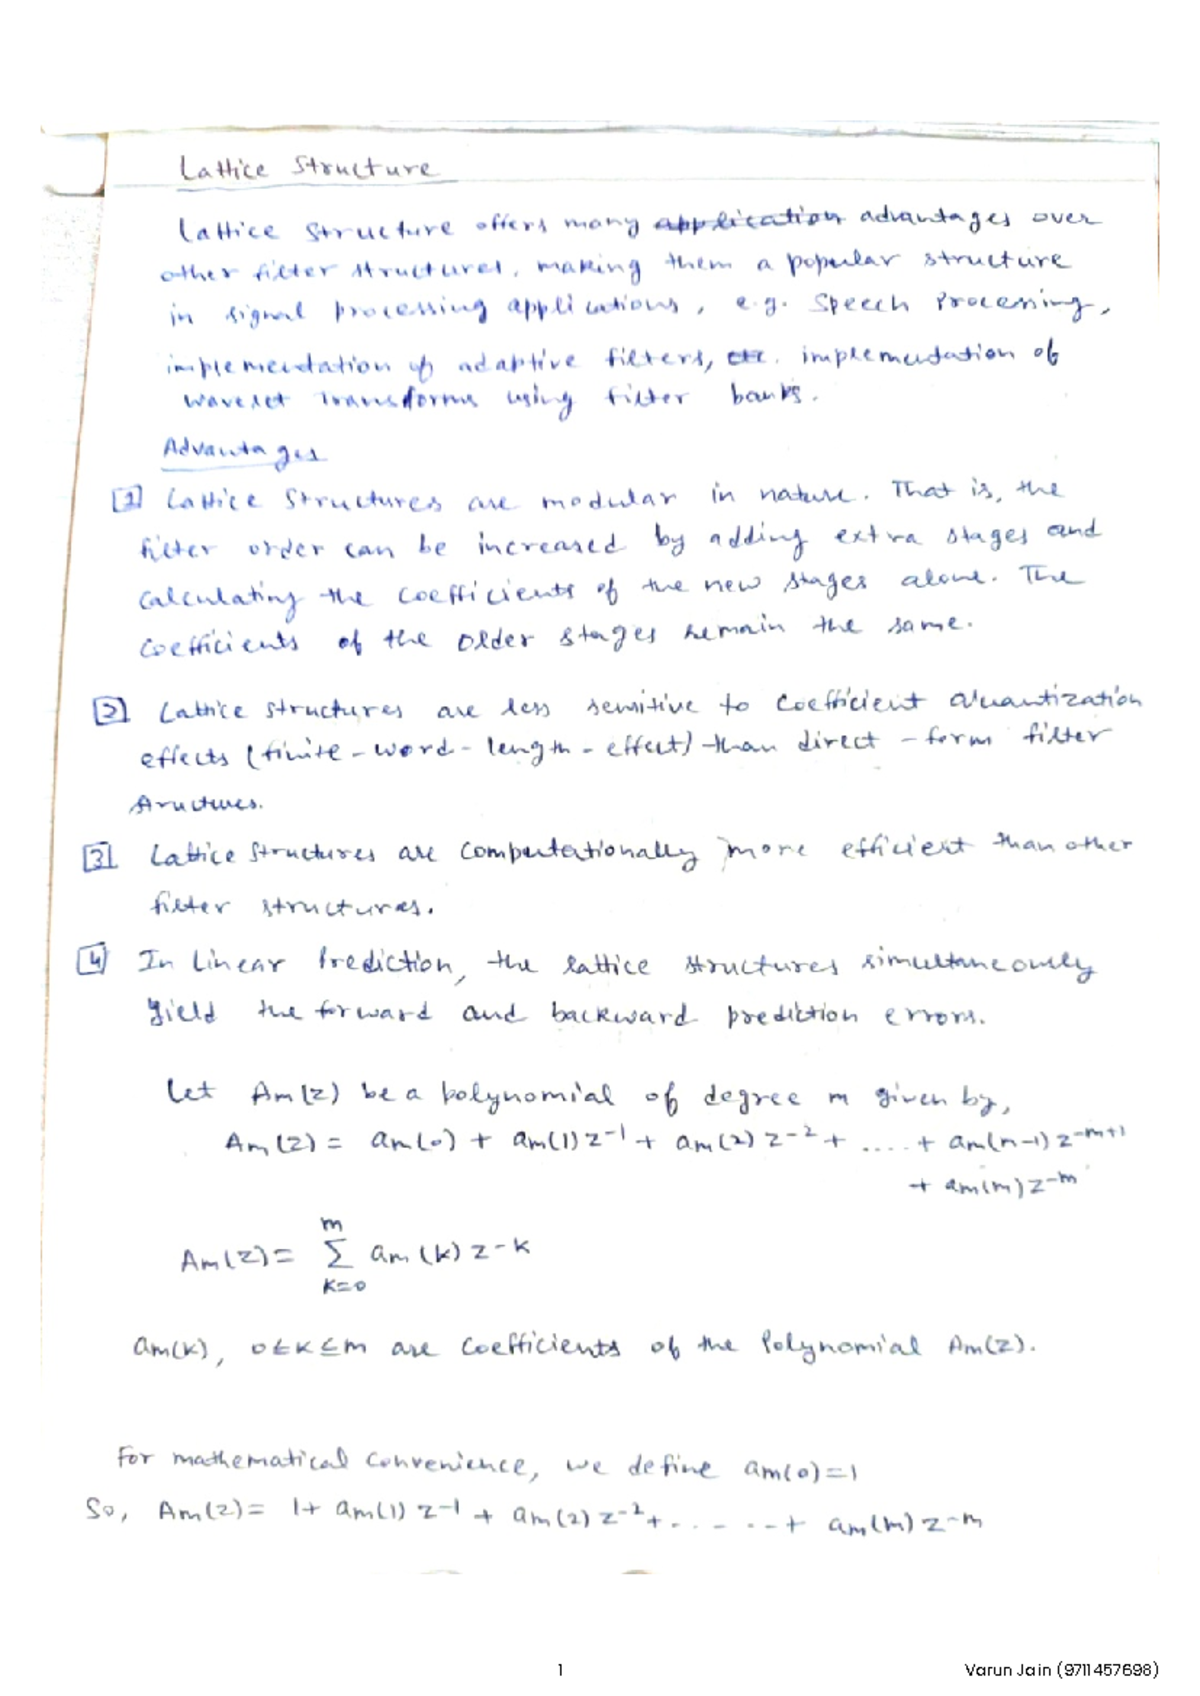 Lattice Structure
Lattice structure offers many application advantages over
other filter structures, making them a popular structure
in signal processing applications, e.g. Speech Processing,
implementation of adaptive filters, etc. implementation of
wavelet Transforms using filter banks.
Advantages
[1] Lattice Structures are modular in nature. That is, the
filter order can be increased by adding extra stages and
calculating the coefficients of the new stages alone. The
coefficients of the older stages remain the same.
[2] Lattice structures are less sensitive to coefficient Quantization
effects (finite-word-length-effect) than direct-form filter
structures.
[3] Lattice structures are computationally more efficient than other
filter structures.
[4] In Linear Prediction, the lattice structures simultaneously
yield the forward and backward prediction errors.
Let Am(z) be a polynomial of degree m given by,
Am(z) = am(0) + am(1)z⁻¹ + am(2)z⁻² + ..... + am(m-1)z⁻ᵐ⁺¹
+ am(m)z⁻ᵐ
m
Am(z) = Σ am(k)z-k
k=0
am(k), 0≤k≤m are coefficients of the Polynomial Am(z).
For mathematical convenience, we define am(0)=1
So, Am(z) = 1+ am(1) z⁻¹ + am(2) z⁻² + ...... + am(m) z⁻ᵐ
1
Varun Jain (9711457698)